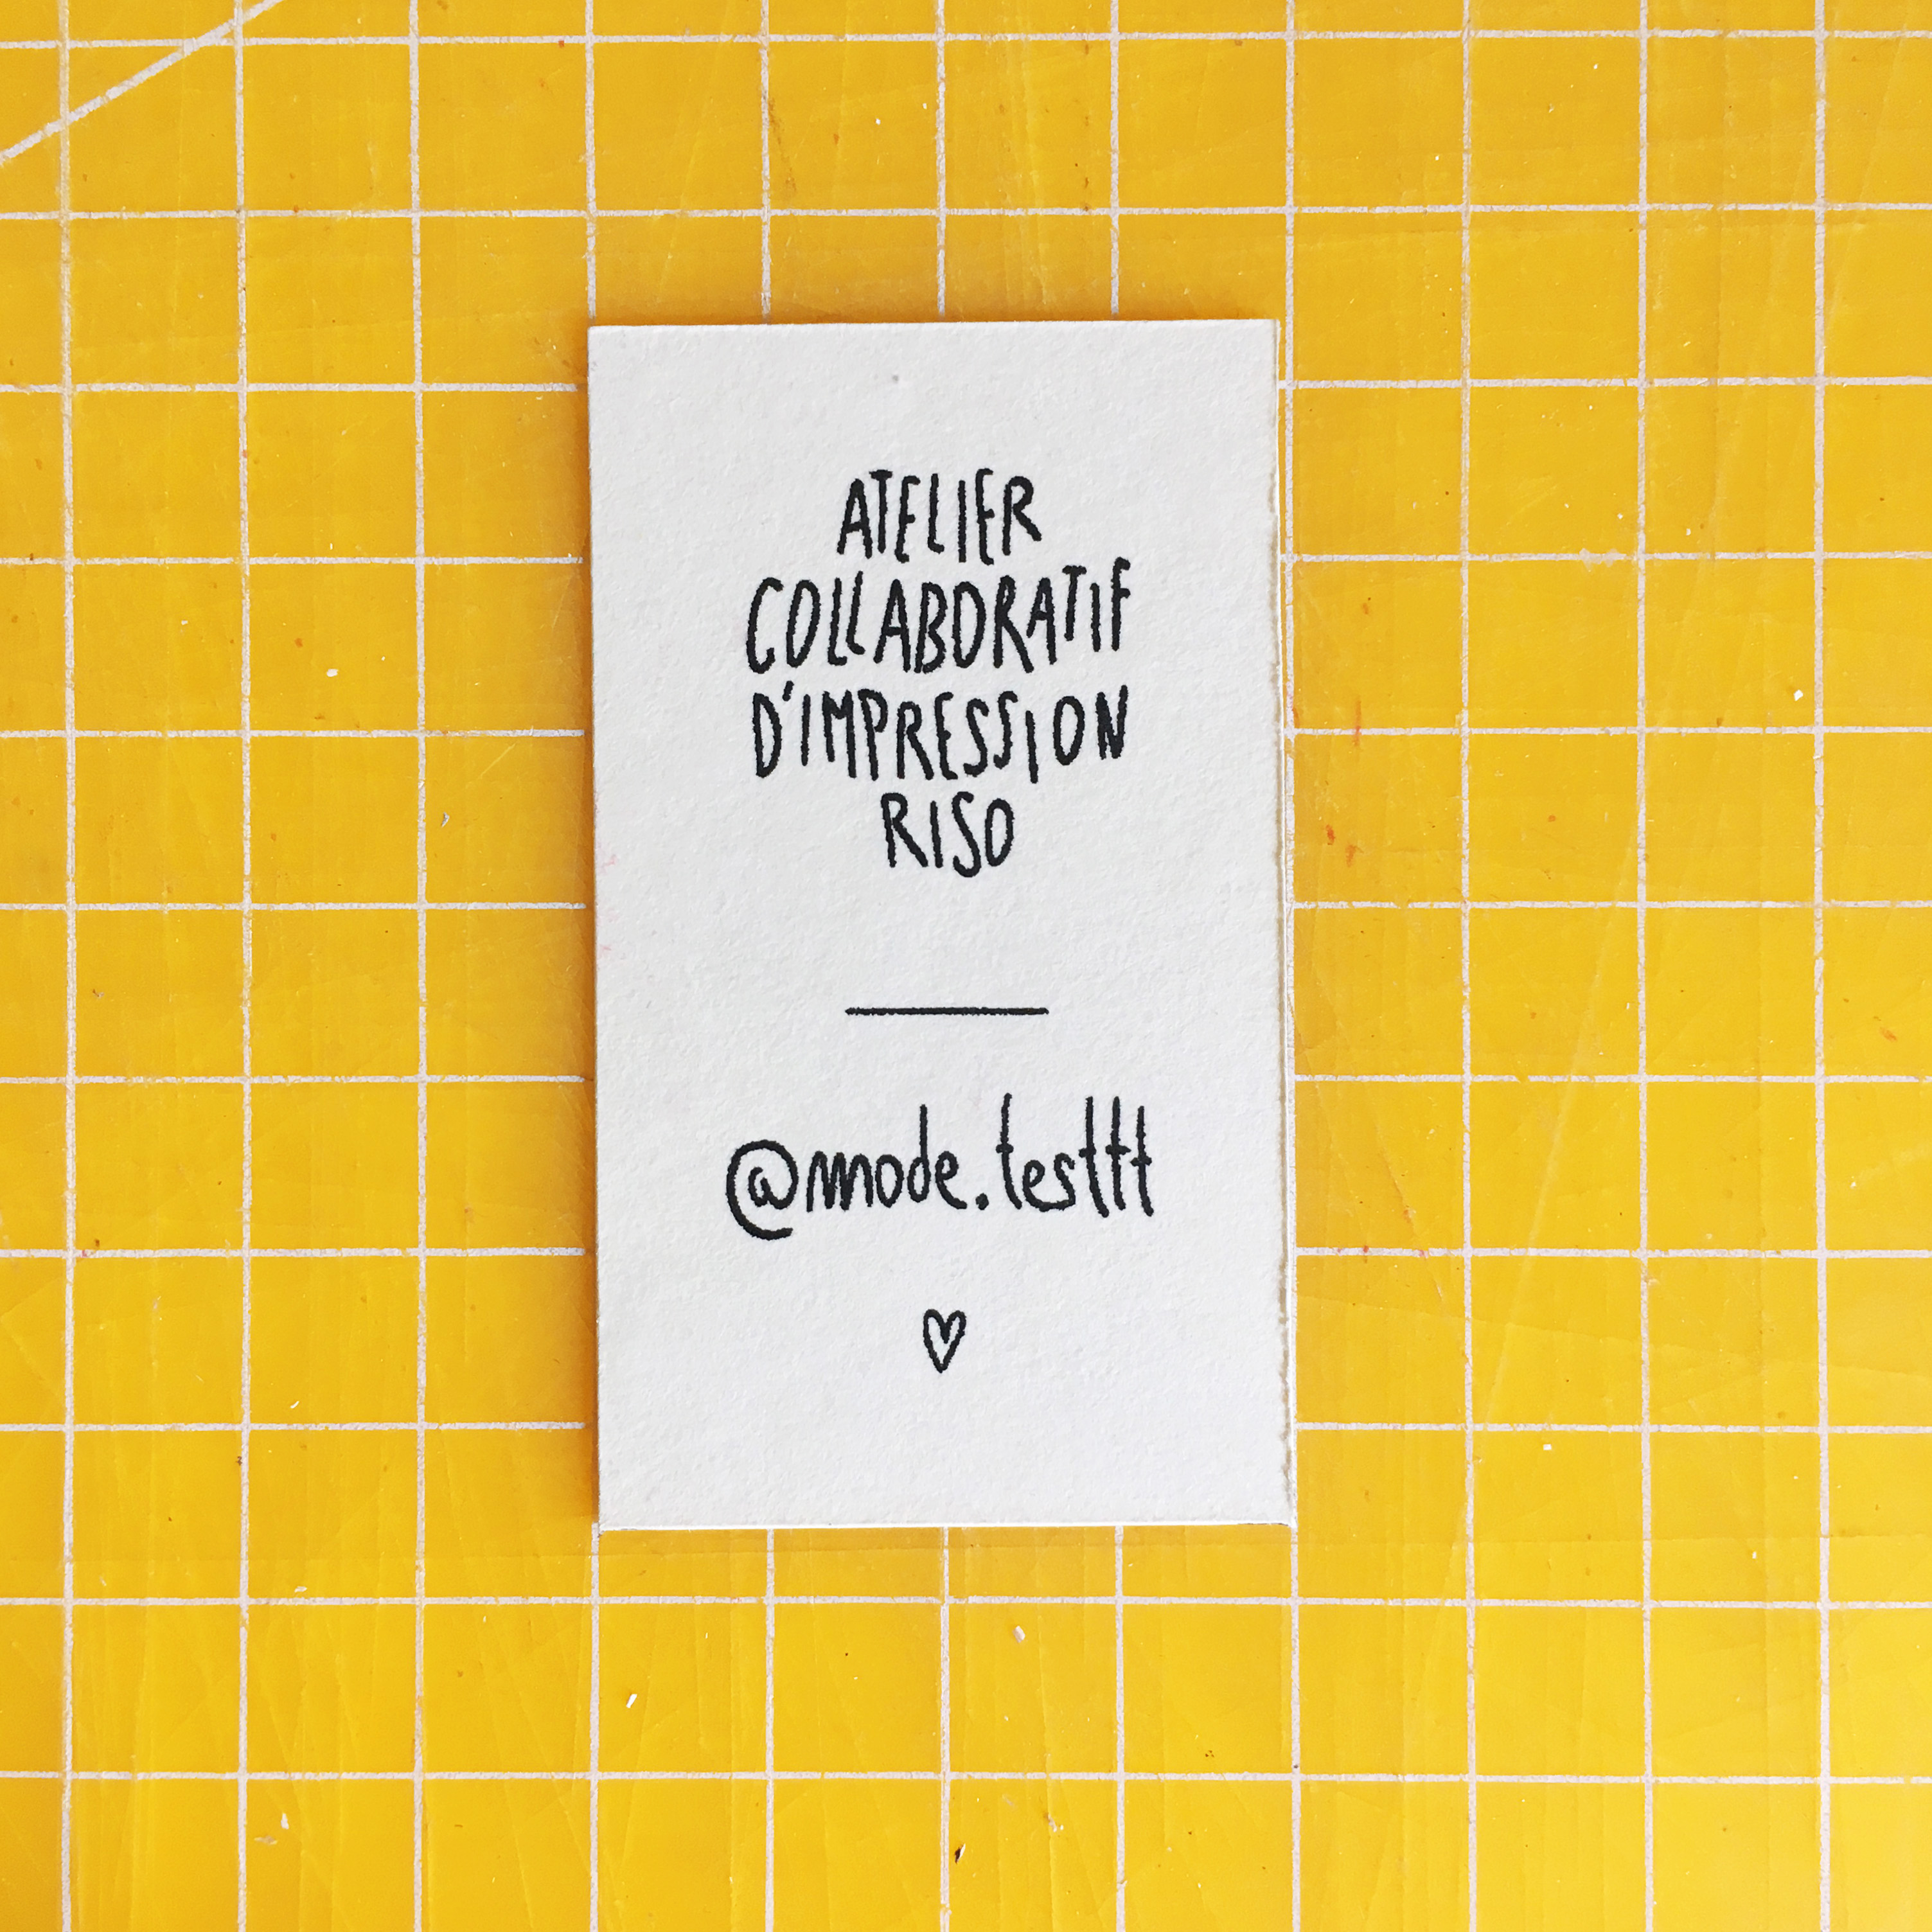 ATELIER
COLLABORATIF
D'IMPRESSION
RISO
@mode.testtt
♡